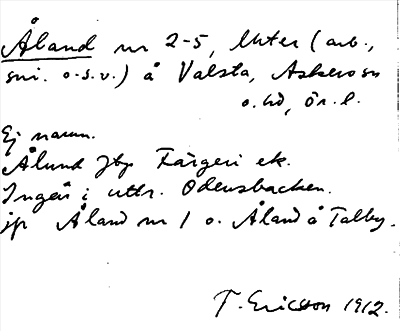 Åland nr 2-5, lhter (arb.,
smi. o.s.v.) å Valsta, Askers sn
o. hd, Ör. l.
Ej namn.
Ålund Jby Färgeri ek.
Ingår i uttr. Odensbacken.
jfr Åland nr 1 o. Åland å Talby.
T. Ericsson 1912.